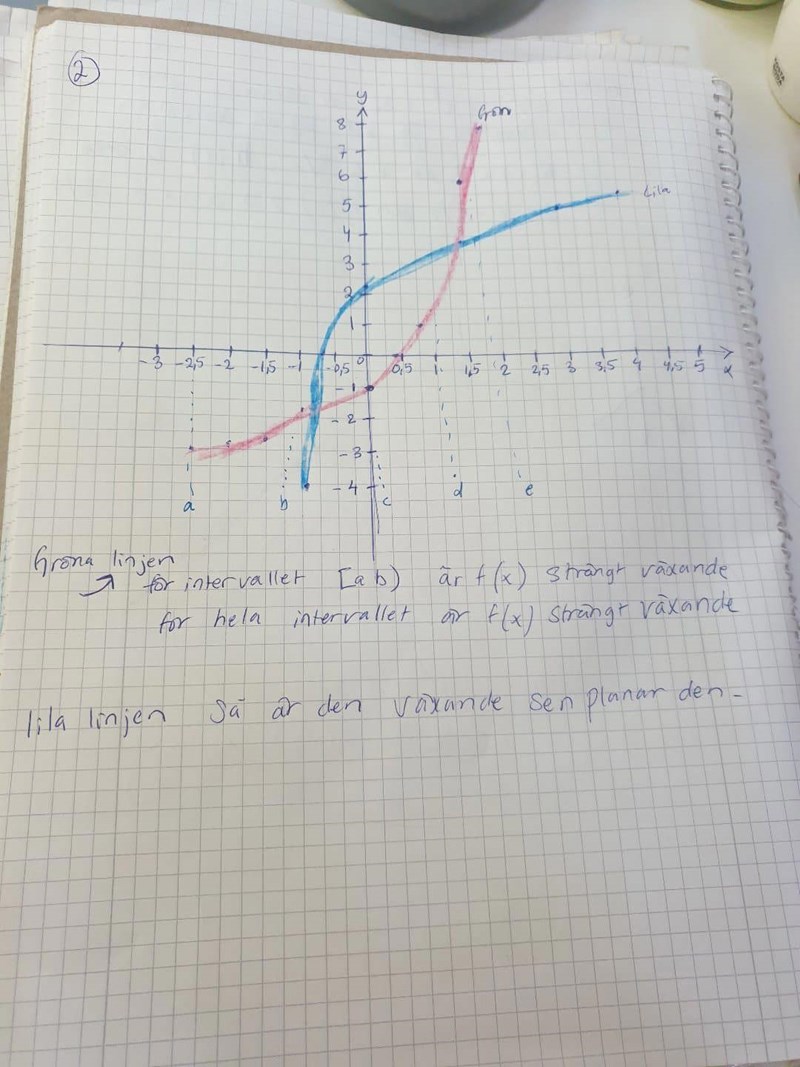 2
y
8
Grön
7
6
5
Lila
4
3
2
1
-3 -2,5 -2 -1,5 -1 -0,5 0 0,5 1 1,5 2 2,5 3 3,5 4 4,5 5 x
-1
-2
-3
-4
a b c d e
Gröna linjen
för intervallet [a b) är f(x) strängt växande
för hela intervallet är f(x) strängt växande
lila linjen Så är den växande sen planar den-